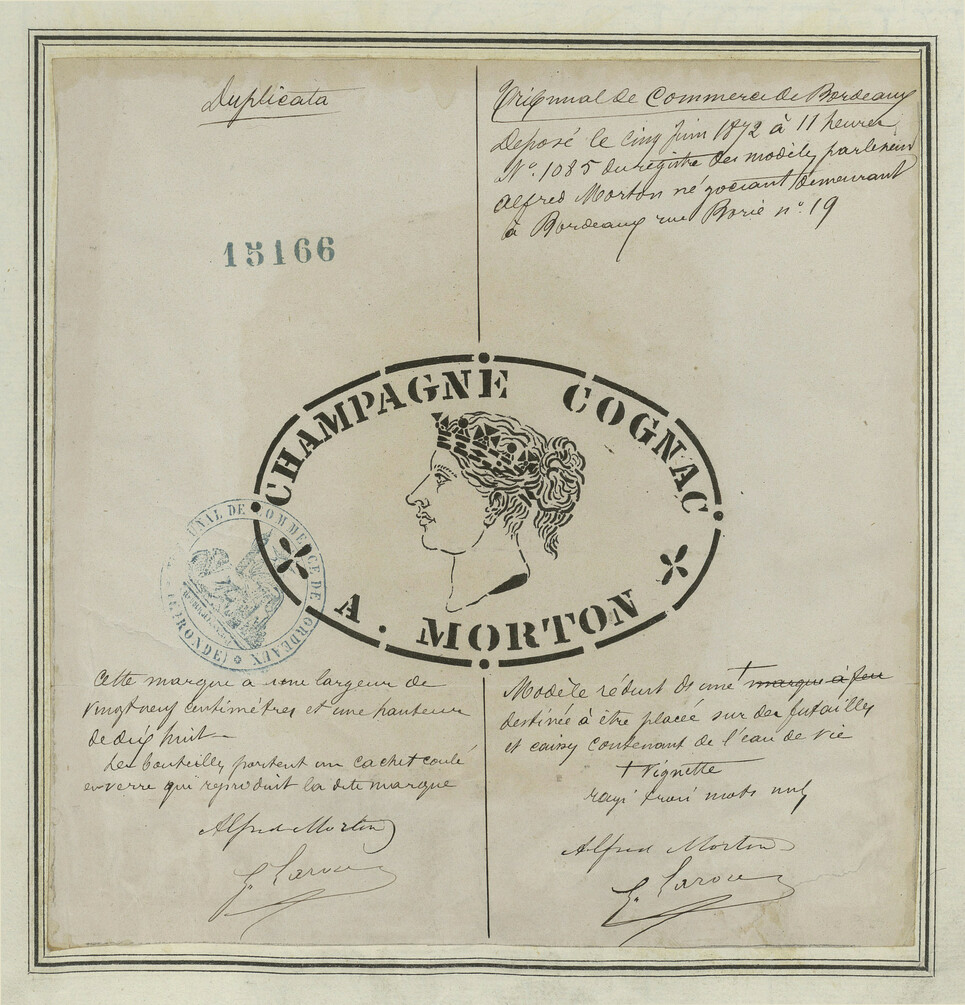 Duplicata
15166
Tribunal de Commerce de Bordeaux
Déposé le cinq Juin 1872 à 11 heures
N° 1085 du registre des modèles par le sieur
Alfred Morton négociant demeurant
à Bordeaux rue Borie n° 19
CHAMPAGNE COGNAC
A. MORTON
TRIBUNAL DE COMMERCE DE BORDEAUX
(GIRONDE)
Cette marque a une largeur de
vingt neuf centimètres et une hauteur
de dix huit
Les bouteilles portent un cachet coulé
en verre qui reproduit la dite marque
Alfred Morton
Modèle réduit d'une † marque à feu
destinée à être placée sur des futailles
et caisses contenant de l'eau de vie
† Vignette
rayé trois mots nuls
Alfred Morton